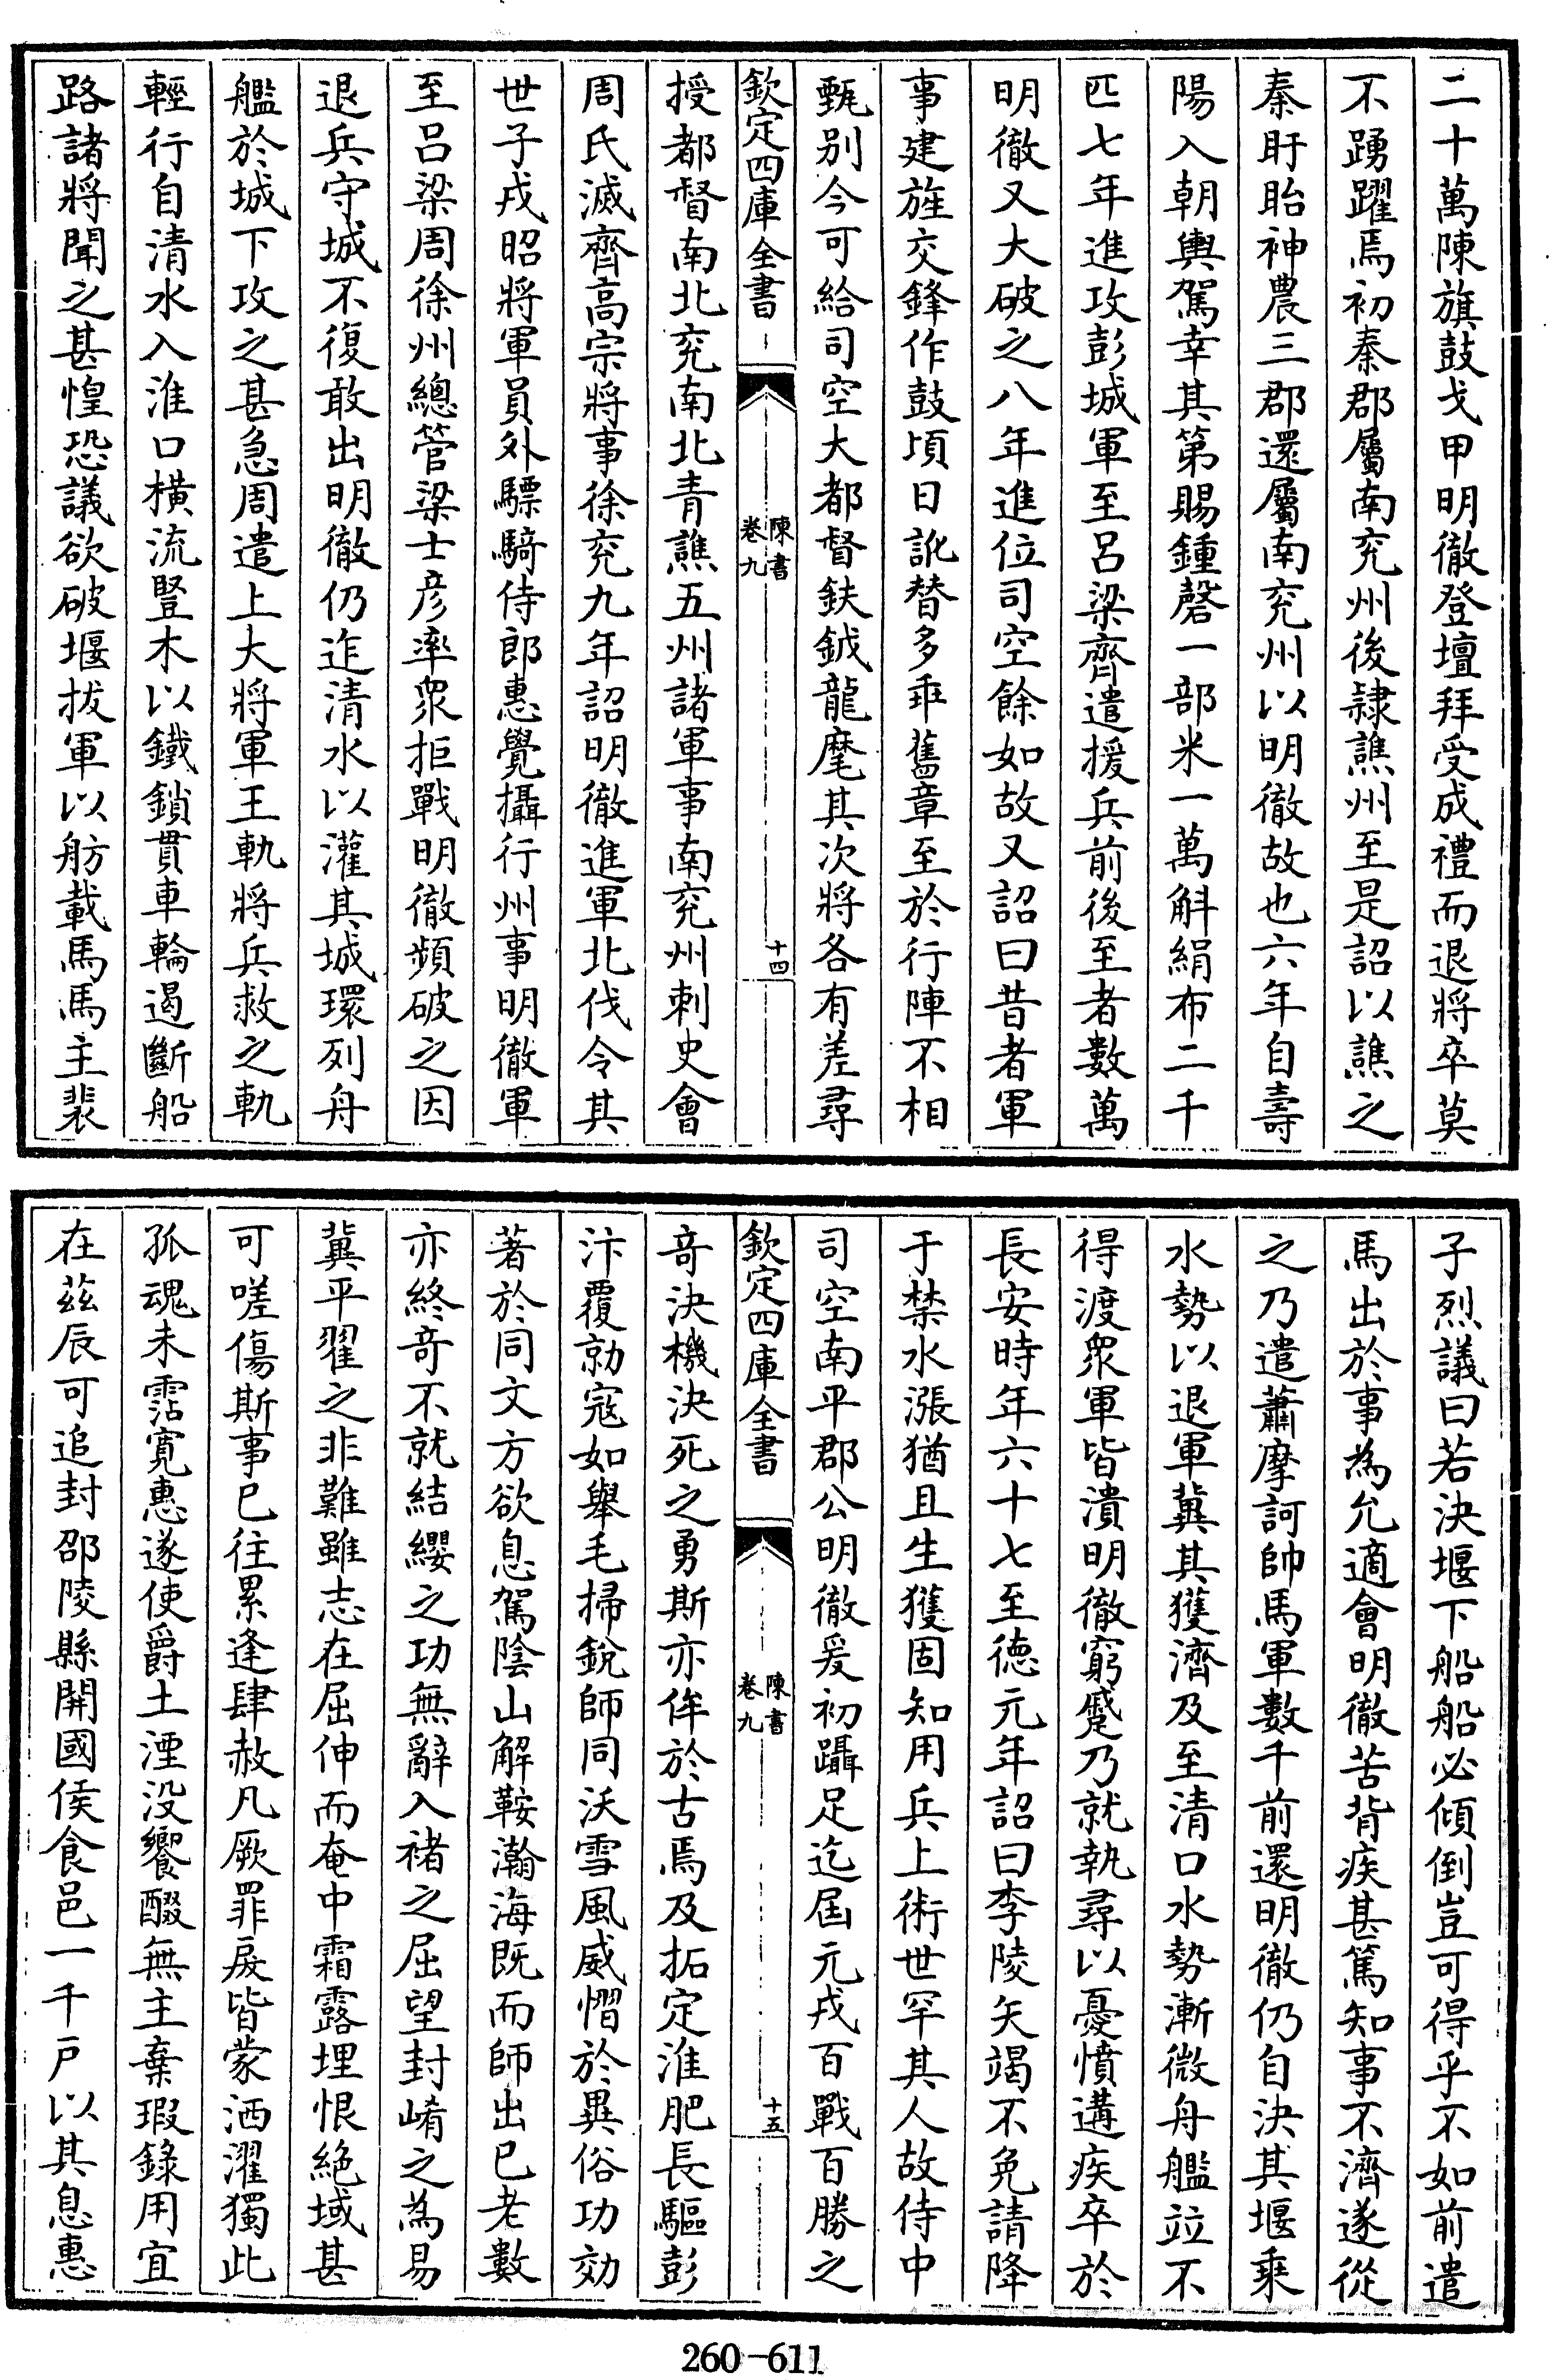 二十萬陳旗鼓戈甲明徹登壇拜受成禮而退將卒莫
不踴躍焉初秦郡屬南兖州後隷譙州至是詔以譙之
秦盱眙神農三郡還屬南兖州以明徹故也六年自壽
陽入朝輿駕幸其第賜鍾磬一部米一萬斛絹布二千
匹七年進攻彭城軍至吕梁齊遣援兵前後至者數萬
明徹又大破之八年進位司空餘如故又詔曰昔者軍
事建旌交鋒作鼓頃日訛替多乖舊章至於行陣不相
甄别今可給司空大都督鈇鉞龍麾其次將各有差尋
欽定四庫全書
陳書
卷九
十四
授都督南北兖南北青譙五州諸軍事南兖州刺史會
周氏滅齊高宗將事徐兖九年詔明徹進軍北伐令其
世子戎昭將軍員外驃騎侍郎惠覺攝行州事明徹軍
至吕梁周徐州總管梁士彦率衆拒戰明徹頻破之因
退兵守城不復敢出明徹仍迮清水以灌其城環列舟
艦於城下攻之甚急周遣上大將軍王軌將兵救之軌
輕行自清水入淮口横流豎木以鐵鎖貫車輪遏斷船
路諸將聞之甚惶恐議欲破堰拔軍以舫載馬馬主裴
子烈議曰若決堰下船船必傾倒豈可得乎不如前遣
馬出於事為允適會明徹苦背疾甚篤知事不濟遂從
之乃遣蕭摩訶帥馬軍數千前還明徹仍自決其堰乘
水勢以退軍冀其獲濟及至清口水勢漸微舟艦竝不
得渡衆軍皆潰明徹窮蹙乃就執尋以憂憤遘疾卒於
長安時年六十七至德元年詔曰李陵矢竭不免請降
于禁水漲猶且生獲固知用兵上術世罕其人故侍中
司空南平郡公明徹爰初躡足迄届元戎百戰百勝之
欽定四庫全書
陳書
卷九
十五
竒決機決死之勇斯亦侔於古焉及拓定淮肥長驅彭
汴覆勍寇如舉毛掃鋭師同沃雪風威慴於異俗功効
著於同文方欲息駕陰山解鞍瀚海既而師出已老數
亦終竒不就結纓之功無辭入褚之屈望封崤之為易
冀平翟之非難雖志在屈伸而奄中霜露埋恨絶域甚
可嗟傷斯事已往累逢肆赦凡厥罪戾皆蒙洒濯獨此
孤魂未霑寛惠遂使爵土湮没饗醊無主棄瑕錄用宜
在兹辰可追封邵陵縣開國侯食邑一千户以其息惠
260-611